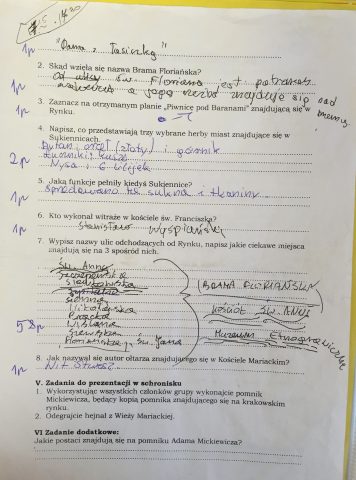 1p
"Dama z łasiczką"
2. Skąd wzięła się nazwa Brama Floriańska?
św. Floriana jest patronem
1p a jego rzeźba znajduje się nad
bramą
3. Zaznacz na otrzymanym planie „Piwnice pod Baranami” znajdującą się w
1p Rynku.
4. Napisz, co przedstawiają trzy wybrane herby miast znajdujące się w
Sukiennicach.
Bytom: orzeł (złoty) i górnik
2p
Nysa: 6 lilijek
5. Jaką funkcje pełniły kiedyś Sukiennice?
1p Sprzedawano tu sukna i tkaniny
6. Kto wykonał witraże w kościele św. Franciszka?
1p Stanisław Wyspiański
7. Wypisz nazwy ulic odchodzących od Rynku, napisz jakie ciekawe miejsca
znajdują się na 3 spośród nich.
św. Anny
Szczepańska
BRAMA FLORIAŃSKA
Sienna
Mikołajska
KOŚCIÓŁ ŚW. ANNY
Bracka
Wiślna
Muzeum Etnograficzne
Szewska
Floriańska, św. Jana
8. Jak nazywał się autor ołtarza znajdującego się w Kościele Mariackim?
1p Wit Stwosz
V. Zadania do prezentacji w schronisku
1. Wykorzystując wszystkich członków grupy wykonajcie pomnik
Mickiewicza, będący kopią pomnika znajdującego się na krakowskim
rynku.
2. Odegrajcie hejnał z Wieży Mariackiej.
VI Zadanie dodatkowe:
Jakie postaci znajdują się na pomniku Adama Mickiewicza?